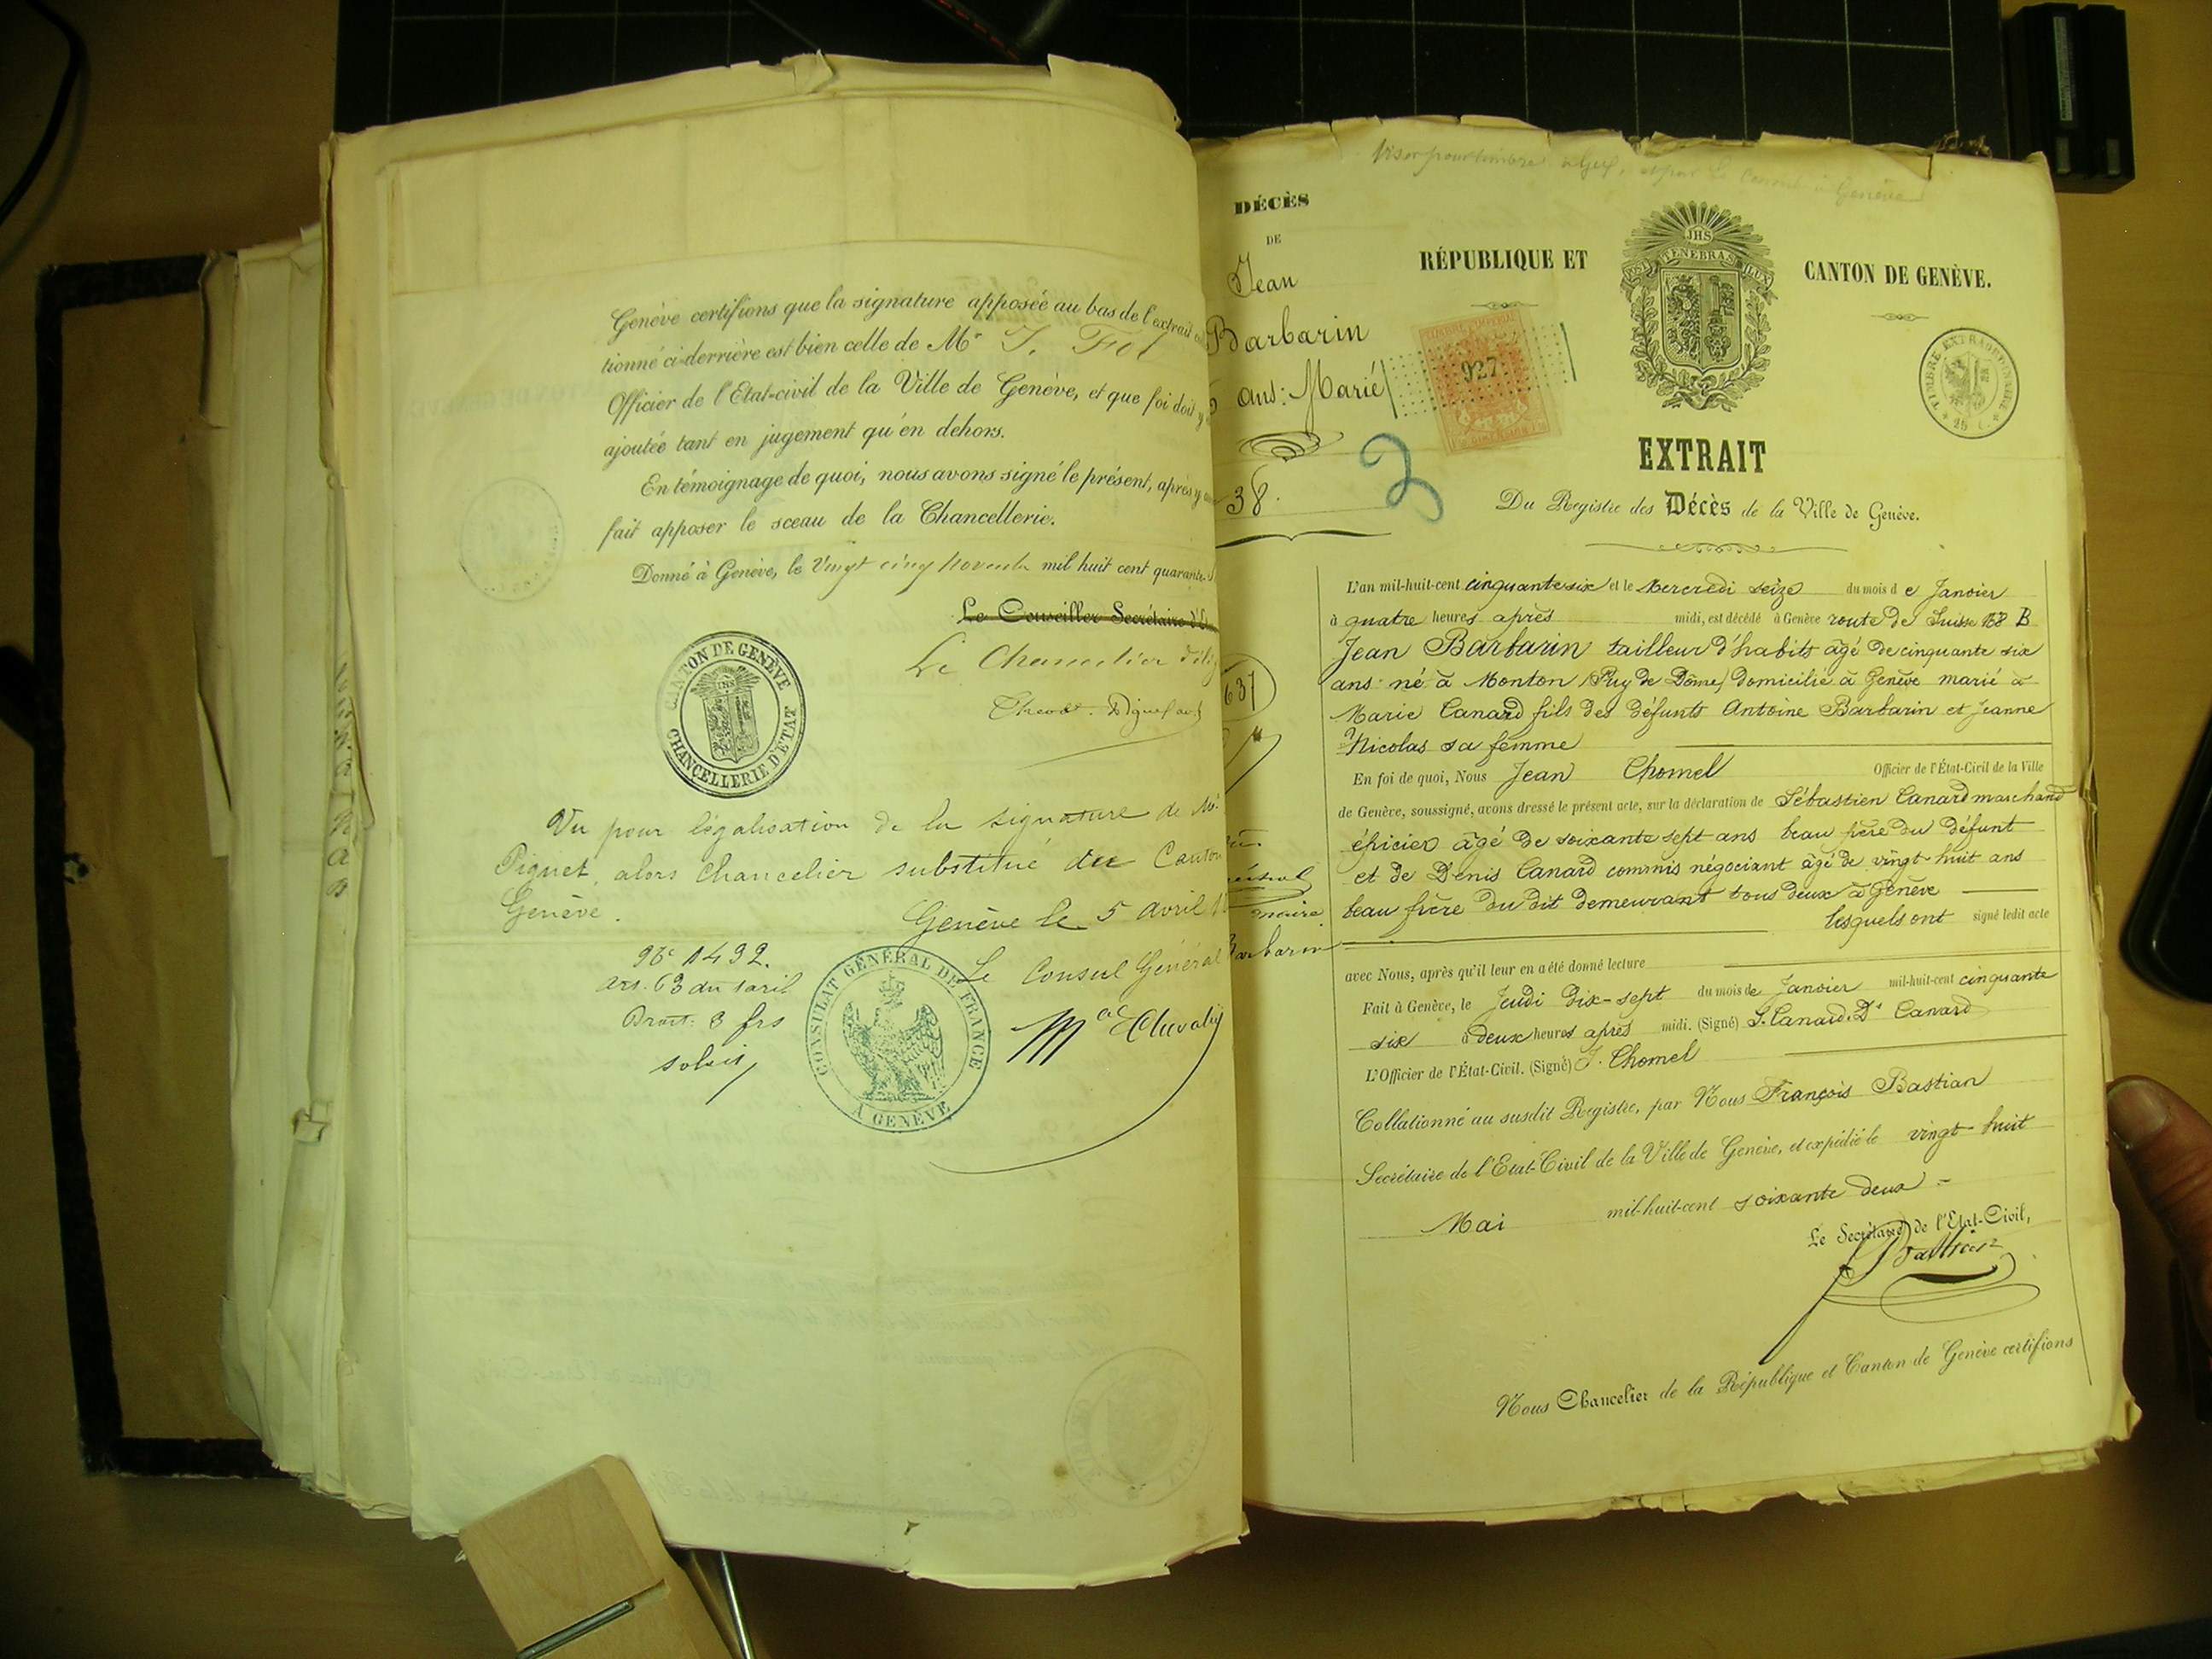 Genève certifions que la signature apposée au bas de l'extrait
tionné ci-derrière est bien celle de Mr
Officier de l'Etat-civil de la Ville de Genève, et que foi doit y
ajoutée tant en jugement qu'en dehors.
En témoignage de quoi, nous avons signé le présent, après y
fait apposer le sceau de la Chancellerie.
Donné à Genève, le Vingt cinq Novembre mil huit cent quarante
Le Conseiller Secrétaire d'
Le Chancelier
CANTON DE GENÈVE
CHANCELLERIE D'ÉTAT
Vu pour légalisation de la signature de Mr
Piguet, alors chancelier substitué du Canton
Genève.
Genève le 5 avril
No 1492.
art. 63 du tarif
Droit: 3 frs
Le Consul Général
CONSULAT GÉNÉRAL DE FRANCE
A GENÈVE
DÉCÈS
DE
Jean
Barbarin
ans: Marié
38.
637
Barbarin
RÉPUBLIQUE ET CANTON DE GENÈVE.
JHS
POST TENEBRAS LUX
TIMBRE IMPÉRIAL
927
TIMBRE EXTRAORDINAIRE
25 C.
2
EXTRAIT
Du Registre des Décès de la Ville de Genève.
L'an mil-huit-cent cinquante six et le Mercredi seize du mois de Janvier
à quatre heures après midi, est décédé à Genève route de Suisse 168 B
Jean Barbarin tailleur d'habits âgé de cinquante six
ans né à Monton (Puy de Dôme) domicilié à Genève marié à
Marie Canard fils des défunts Antoine Barbarin et Jeanne
Nicolas sa femme
En foi de quoi, Nous Jean Chomel Officier de l'État-Civil de la Ville
de Genève, soussigné, avons dressé le présent acte, sur la déclaration de Sébastien Canard marchand
épicier âgé de soixante sept ans beau père du défunt
et de Denis Canard commis négociant âgé de vingt-huit ans
beau frère du dit demeurant tous deux à Genève
lesquels ont signé ledit acte
avec Nous, après qu'il leur en a été donné lecture
Fait à Genève, le Jeudi dix-sept du mois de Janvier mil-huit-cent cinquante
six à deux heures après midi. (Signé) S. Canard. Ds Canard
L'Officier de l'État-Civil. (Signé) J. Chomel
Collationné au susdit Registre, par Nous François Bastian
Secrétaire de l'Etat-Civil de la Ville de Genève, et expédié le vingt-huit
Mai mil-huit-cent soixante deux
Le Secrétaire de l'Etat-Civil,
Bastian
Nous Chancelier de la République et Canton de Genève certifions